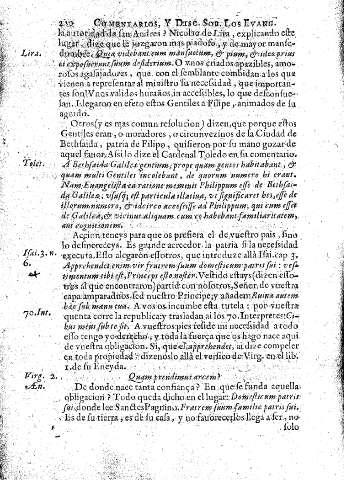 COMENTARIOS, Y DISC. SOB. LOS EVANG.
la autoridad de san Andres? Nicolao de Lira, explicando este
Lira.
lugar, dize que le juzgaron mas piadoso, y de mayor manse-
dumbre. Quia videbant eum mansuetum, & pium, & ideo prius
ei exposuerunt suum desiderium. O vnos criados apazibles, amo-
rosos agasajadores, que con el semblante combidan a los que
vienen a representar al ministro su necessidad, que importan-
tes son! Vnos validos humanos, in accessibles, lo que desconsue-
lan. Llegaron en efeto estos Gentiles a Filipe, animados de su
agrado.
Otros (y es mas comun resolucion) dizen, que porque estos
Gentiles eran, o moradores, o circunvezinos de la Ciudad de
Bethsaida, patria de Filipo, quisieron por su mano gozar de
aquel fauor. Assi lo dize el Cardenal Toledo en su comentario.
Tolet.
A Bethsaida Galilea gentium; prope quam gentes habitabant, &
quam multi Gentiles incolebant, de quorum numero hi erant.
Nam Euangelista ea ratione meminit Philippum esse de Bethsai-
da Galileæ; vsusq; est particula illatiua, vt significaret hos, esse de
illorum numero, & ob id eos accessisse ad Philippum, qui cum esset
de Galilea, & vicinus aliquam cum eo habebant familiaritatem,
aut cognitionem.
Accion teneys para que os prefiera el de vuestro pais, sino
lo desmereceys. Es grande acreedor la patria si la necessidad
Isai. 3. n.
executa. Esso alegaron essotros, que introduce allà Isai. cap. 3
6.
Apprehendet enim vir fratrem suum domesticum patris sui: ves-
timentum tibi est, Princeps esto noster. Vestido estays (dizen esso-
tros al que encontraron) partid con nosotros, Señor, de vuestra
capa amparadnos, sed nuestro Principe, y añadem Ruina autem
hæc sub manu tua. A vos os incumbe esta tutela: por vuestra
70. Int.
quenta corre la republica y trasladan ai los 70. Interpretes: Ci-
bus meus sub te sit. A vuestros pies reside mi necessidad a todo
esso tengo yo derecho, y toda la fuerça que os hago nace aqui
de vuestra obligacion. Si, que el apprehendet, ai dize compeler
en toda propiedad? dizenoslo allà el versico de Virg. en el lib.
1. de su Eneyda.
Virg. 2.
Quam prendimus arcem?
Æn.
De donde nace tanta confiança? En que se funda aquella
obligacion? Todo queda dicho en el lugar: Domesticum patris
sui, donde lee Sanctes Pagnino. Fratrem suum familiæ patris sui.
Es de su tierra, es de su casa, y no fauorecerlos llega a ser, no
solo